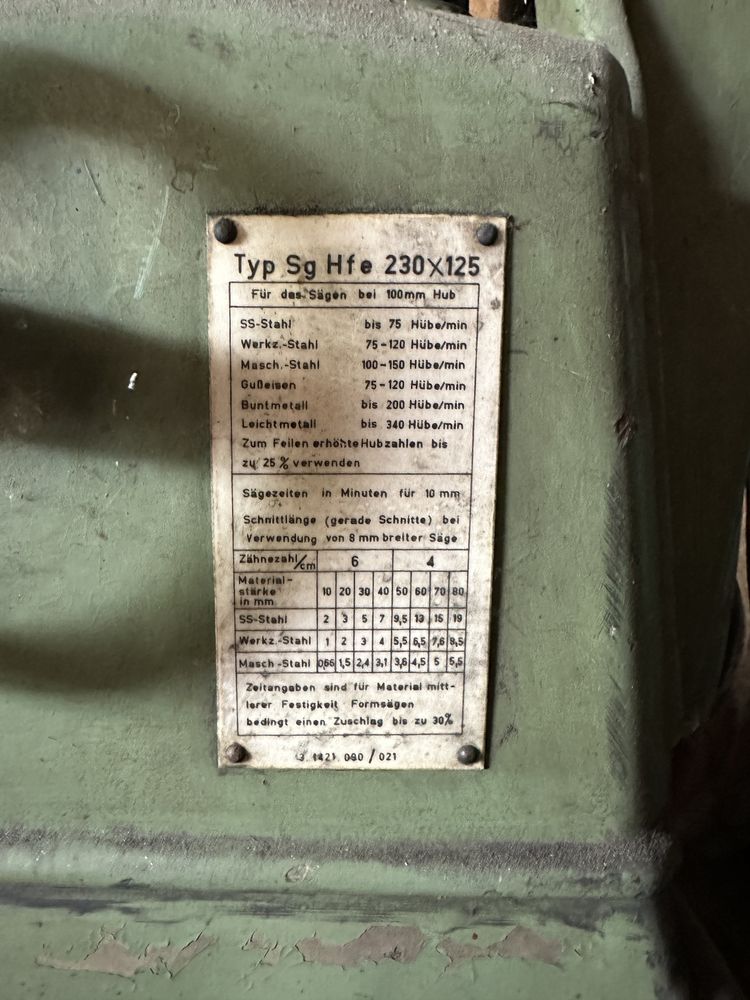 Typ Sg Hfe 230X125
Für das Sägen bei 100mm Hub
SS-Stahl bis 75 Hübe/min
Werkz.-Stahl 75-120 Hübe/min
Masch.-Stahl 100-150 Hübe/min
Gußeisen 75-120 Hübe/min
Buntmetall bis 200 Hübe/min
Leichtmetall bis 340 Hübe/min
Zum Feilen erhöhte Hubzahlen bis
zu 25% verwenden
Sägezeiten in Minuten für 10 mm
Schnittlänge (gerade Schnitte) bei
Verwendung von 8 mm breiter Säge
Zähnezahl/cm 6 4
Material-
stärke 10 20 30 40 50 60 70 80
in mm
SS-Stahl 2 3 5 7 9,5 13 15 19
Werkz.-Stahl 1 2 3 4 5,5 6,5 7,6 8,5
Masch-Stahl 0,66 1,5 2,4 3,1 3,6 4,5 5 5,5
Zeitangaben sind für Material mitt-
lerer Festigkeit Formsägen
bedingt einen Zuschlag bis zu 30%
3.1421.090/021